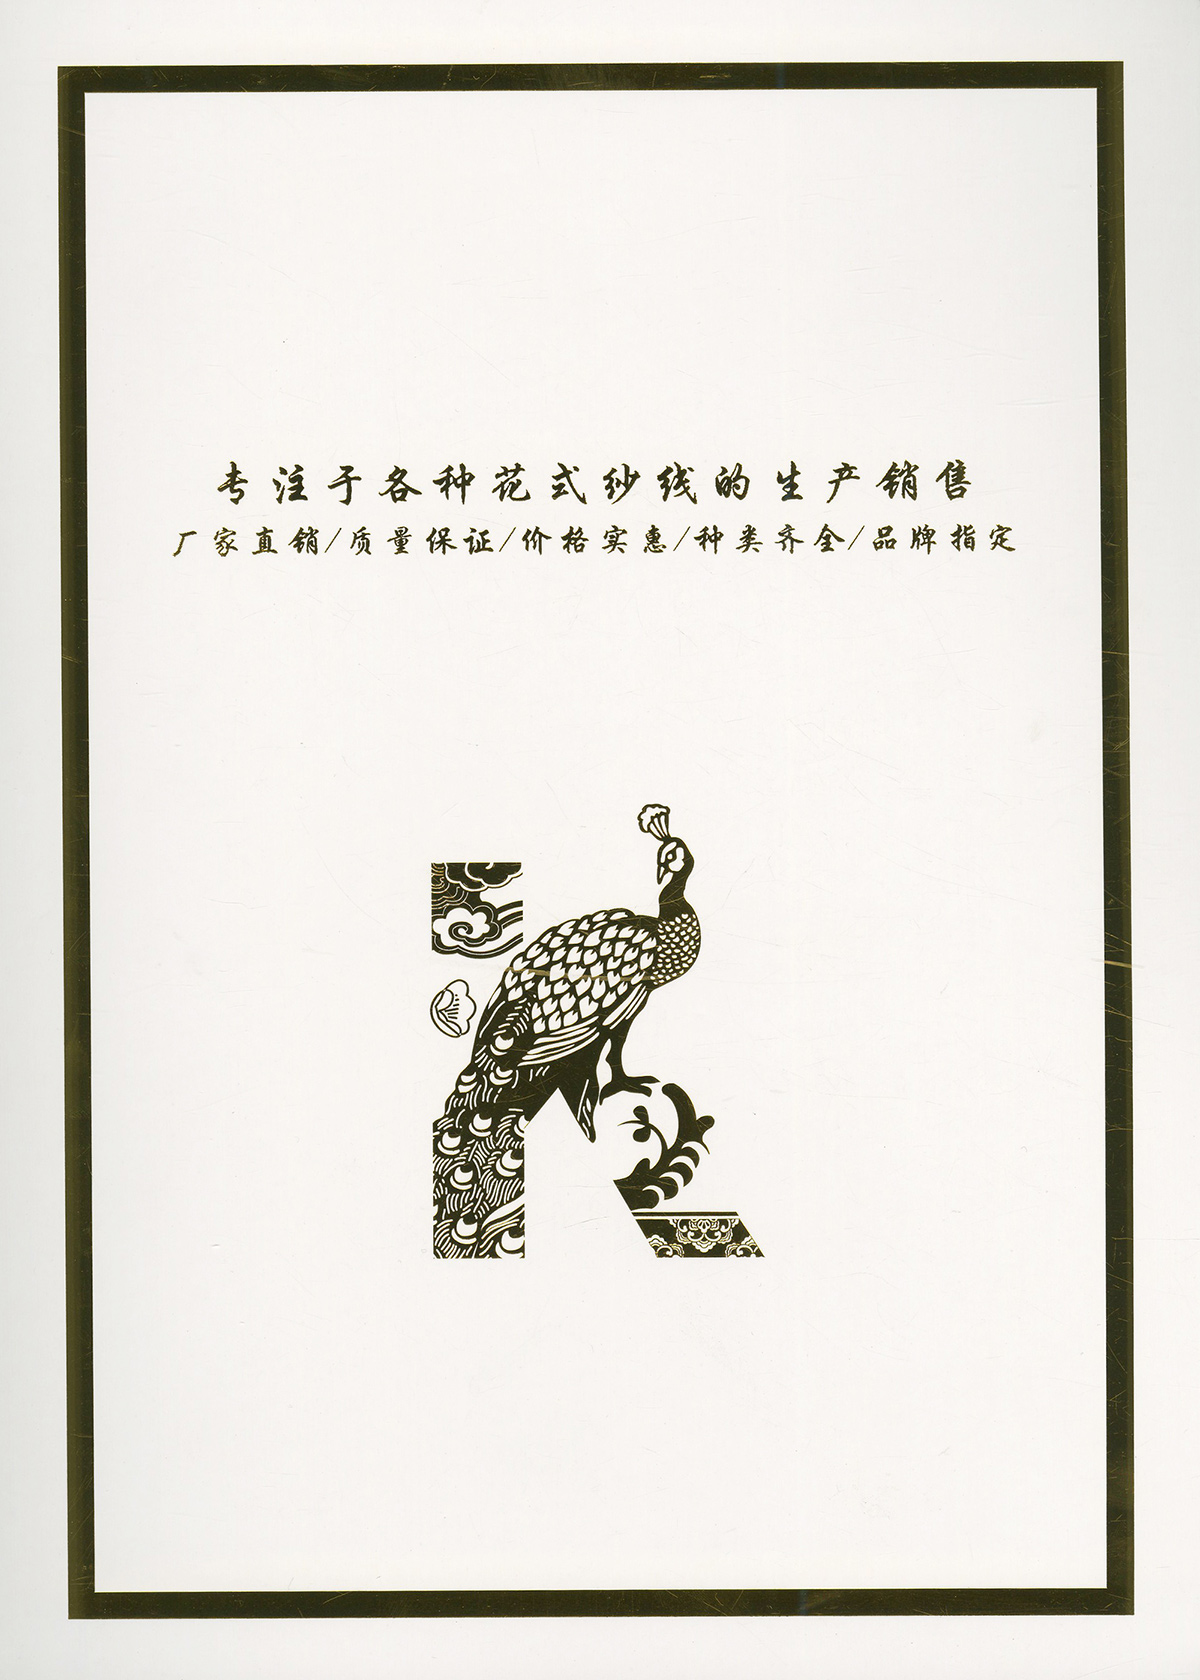 专注于各种花式纱线的生产销售
厂家直销/质量保证/价格实惠/种类齐全/品牌指定